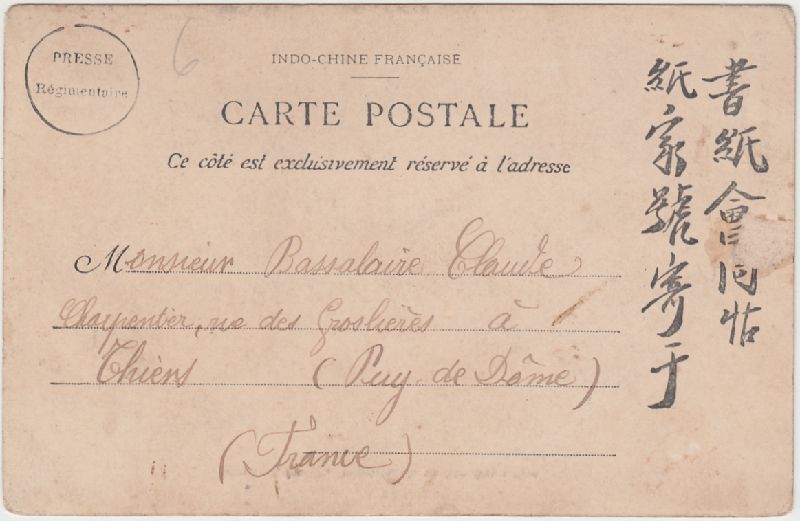 PRESSE
Régimentaire
6
INDO-CHINE FRANÇAISE
CARTE POSTALE
Ce côté est exclusivement réservé à l'adresse
Monsieur Bassalaire Claude
Charpentier, rue des Groslières à
Thiers (Puy de Dôme)
(France)
書紙會同帖
紙家號寄于